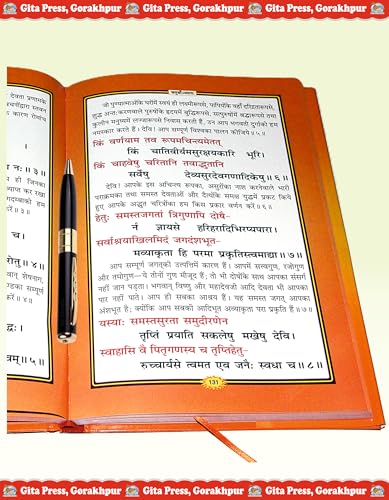 Gita Press, Gorakhpur Gita Press, Gorakhpur Gita Press, Gorakhpur Gita Press, Gorakhpur
जो पुण्यात्माओंके घरोंमें स्वयं ही लक्ष्मीरूपसे, पापियोंके यहाँ दरिद्रतारूपसे,
शुद्ध अन्तःकरणवाले पुरुषोंके हृदयमें बुद्धिरूपसे, सत्पुरुषोंमें श्रद्धारूपसे तथा
कुलीन मनुष्यमें लज्जारूपसे निवास करती हैं, उन आप भगवती दुर्गाको हम
नमस्कार करते हैं। देवि! आप सम्पूर्ण विश्वका पालन कीजिये॥५॥
किं वर्णयाम तव रूपमचिन्त्यमेतत्
किं चातिवीर्यमसुरक्षयकारि भूरि।
किं चाहवेषु चरितानि तवाद्भुतानि
सर्वेषु देव्यसुरदेवगणादिकेषु॥६॥
देवि! आपके इस अचिन्त्य रूपका, असुरोंका नाश करनेवाले भारी
पराक्रमका तथा समस्त देवताओं और दैत्योंके समक्ष युद्धमें प्रकट किये
हुए आपके अद्भुत चरित्रोंका हम किस प्रकार वर्णन करें॥६॥
हेतुः समस्तजगतां त्रिगुणापि दोषै-
र्न ज्ञायसे हरिहरादिभिरप्यपारा।
सर्वाश्रयाखिलमिदं जगदंशभूत-
मव्याकृता हि परमा प्रकृतिस्त्वमाद्या॥७॥
आप सम्पूर्ण जगत्की उत्पत्तिमें कारण हैं। आपमें सत्त्वगुण, रजोगुण
और तमोगुण—ये तीनों गुण मौजूद हैं; तो भी दोषोंके साथ आपका संसर्ग
नहीं जान पड़ता। भगवान् विष्णु और महादेवजी आदि देवता भी आपका
पार नहीं पाते। आप ही सबका आश्रय हैं। यह समस्त जगत् आपका
अंशभूत है; क्योंकि आप सबकी आदिभूत अव्याकृता परा प्रकृति हैं॥७॥
यस्याः समस्तसुरता समुदीरणेन
तृप्तिं प्रयाति सकलेषु मखेषु देवि।
स्वाहासि वै पितृगणस्य च तृप्तिहेतु-
रुच्चार्यसे त्वमत एव जनैः स्वधा च॥८॥
131
Gita Press, Gorakhpur Gita Press, Gorakhpur Gita Press, Gorakhpur Gita Press, Gorakhpur